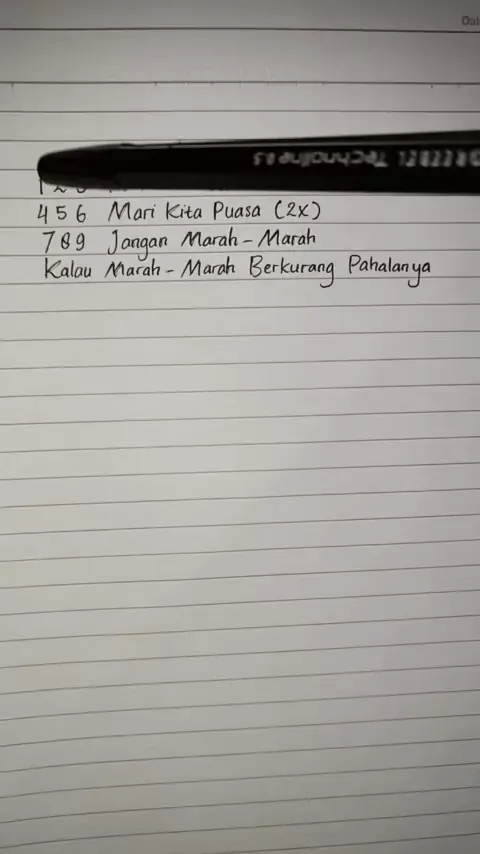 Dat
1 2 3
4 5 6 Mari Kita Puasa (2x)
7 8 9 Jangan Marah - Marah
Kalau Marah - Marah Berkurang Pahalanya